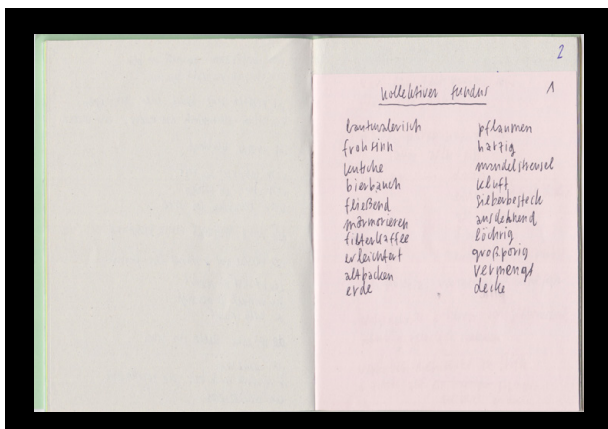 2
kollektiver fundus
1
lautmalerisch
frohsinn
kutsche
bierbauch
fließend
filterkaffee
erleichtert
altbacken
erde
pflaumen
harzig
mandelstreusel
kluft
silberbesteck
ausdehnend
löchrig
großporig
vermengt
decke